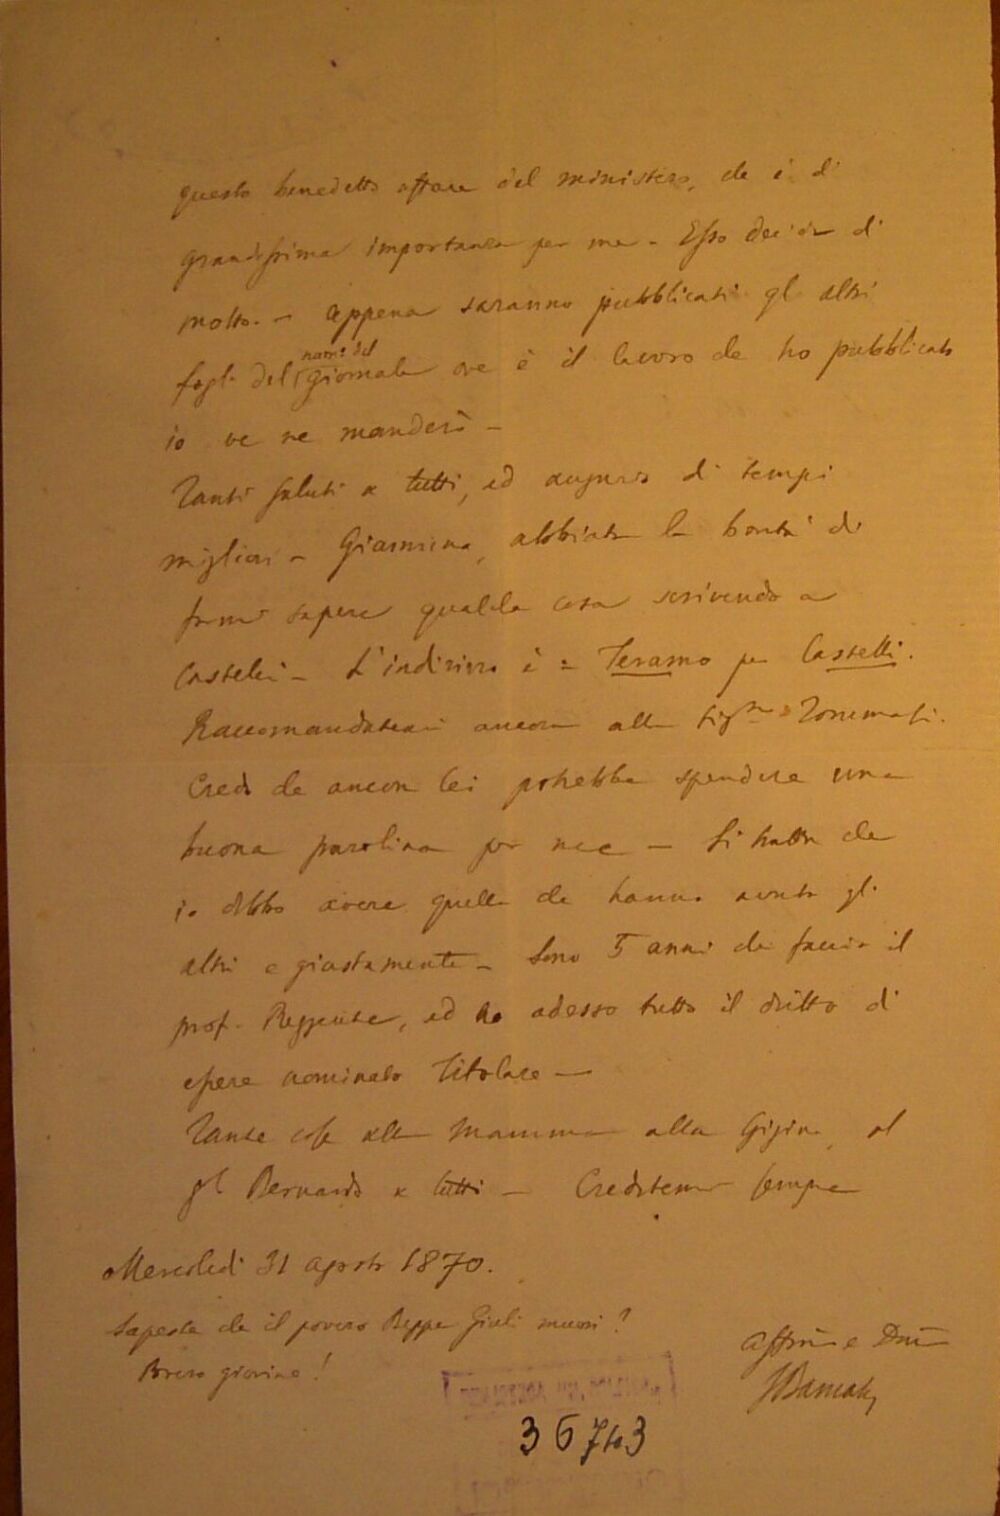 questo benedetto affare del ministero, che è di
grandissima importanza per me - Esso decide di
molto. - appena saranno pubblicati gl altri
fogli del giornale ove è il lavoro che ho pubblicato
nomi del
io ve ne manderò -
Tanti saluti a tutti, ed augurio di tempi
migliori - Giannina, abbiate la bontà di
farmi sapere qualche cosa scrivendo a
Castelli - L'indirizzo è = Teramo per Castelli.
Raccomandatemi ancora alla Sigra
Credo che ancora lei potrebbe spendere una
buona parolina per me - Si tratta che
io debbo avere quello che hanno avuto gli
altri e giustamente - Sono 5 anni che faccio il
prof. Reggente, ed ho adesso tutto il dritto di
essere nominato Titolare -
Tante cose alla Mamma alla Gigina, al
Bernardo a tutti - Credetemi sempre
Mercoledì 31 agosto 1870.
Sapeste che il povero Beppe Giuli morì?
Povero giovine!
Affmo e
36743